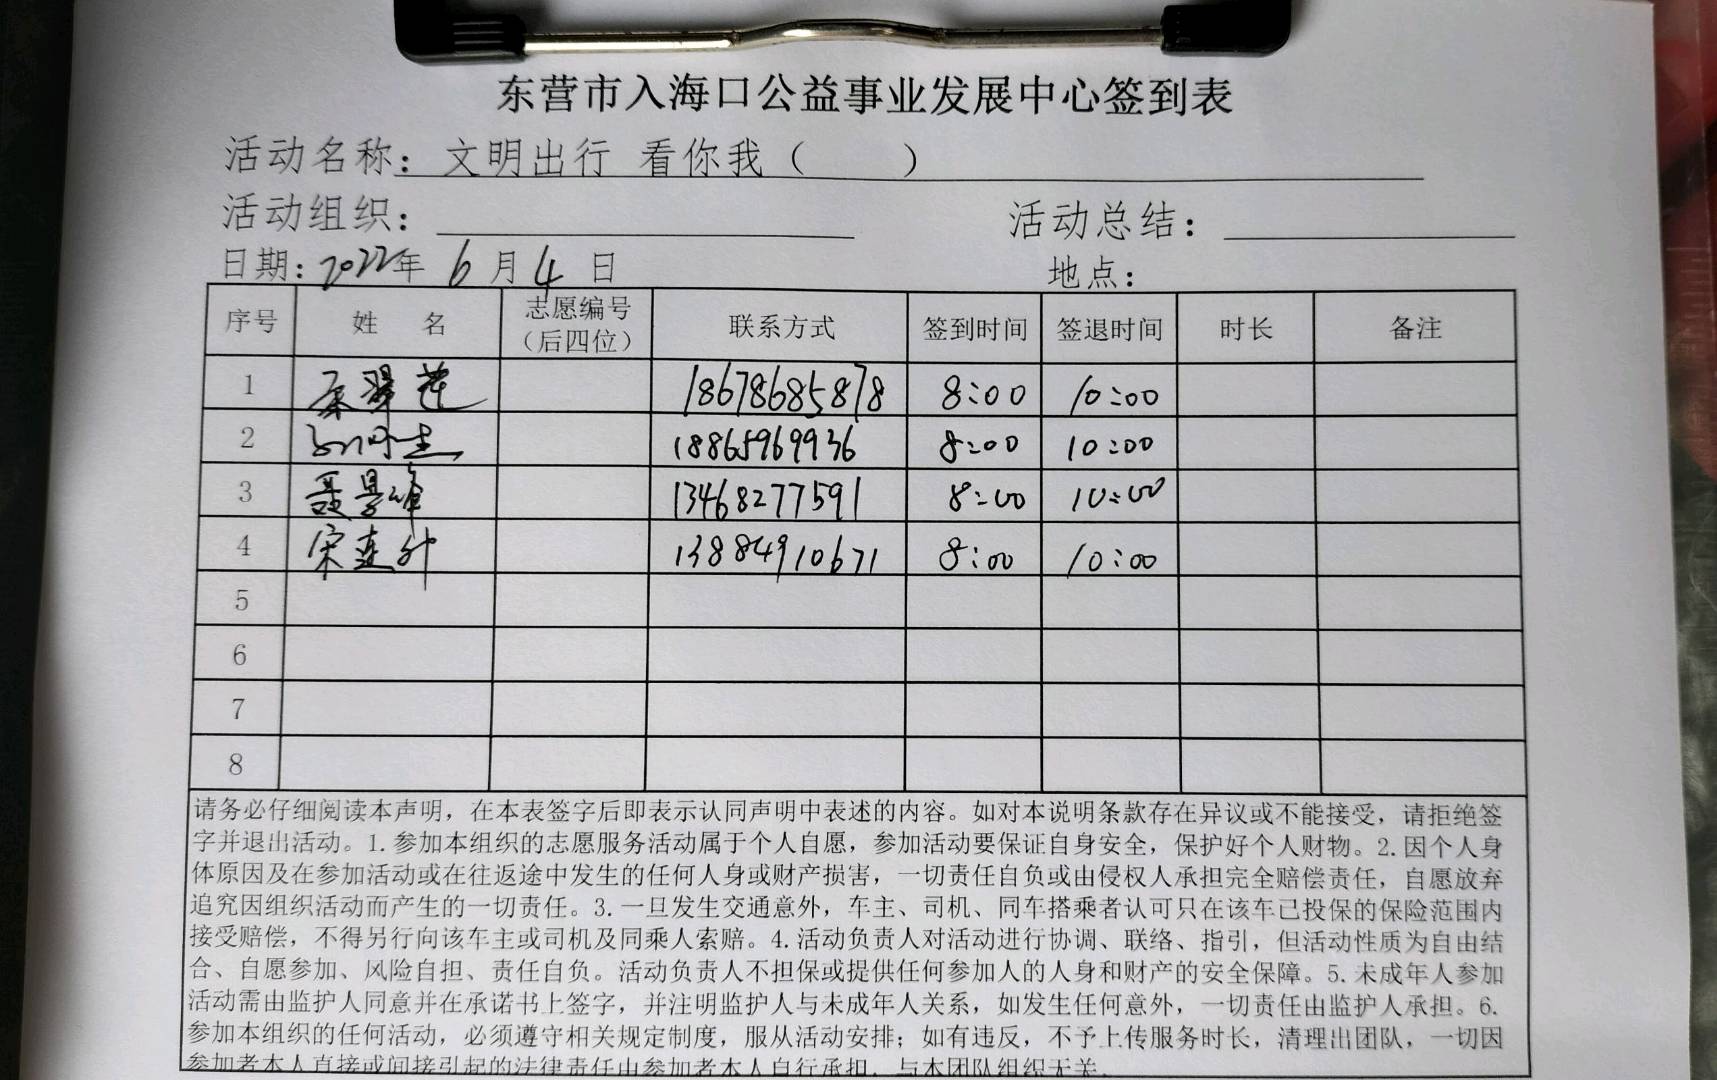 东营市入海口公益事业发展中心签到表
活动名称：文明出行 看你我（　　）
活动组织：　　活动总结：
日期：2022年 6 月 4 日　　地点：
序号 姓 名 志愿编号（后四位） 联系方式 签到时间 签退时间 时长 备注
1 18678685878 8:00 10:00
2 18865969936 8:00 10:00
3 聂景峰 13468277591 8:00 10:00
4 宋连升 13884910671 8:00 10:00
5
6
7
8
请务必仔细阅读本声明，在本表签字后即表示认同声明中表述的内容。如对本说明条款存在异议或不能接受，请拒绝签
字并退出活动。1.参加本组织的志愿服务活动属于个人自愿，参加活动要保证自身安全，保护好个人财物。2.因个人身
体原因及在参加活动或在往返途中发生的任何人身或财产损害，一切责任自负或由侵权人承担完全赔偿责任，自愿放弃
追究因组织活动而产生的一切责任。3.一旦发生交通意外，车主、司机、同车搭乘者认可只在该车已投保的保险范围内
接受赔偿，不得另行向该车主或司机及同乘人索赔。4.活动负责人对活动进行协调、联络、指引，但活动性质为自由结
合、自愿参加、风险自担、责任自负。活动负责人不担保或提供任何参加人的人身和财产的安全保障。5.未成年人参加
活动需由监护人同意并在承诺书上签字，并注明监护人与未成年人关系，如发生任何意外，一切责任由监护人承担。6.
参加本组织的任何活动，必须遵守相关规定制度，服从活动安排；如有违反，不予上传服务时长，清理出团队，一切因
参加者本人直接或间接引起的法律责任由参加者本人自行承担，与本团队组织无关。